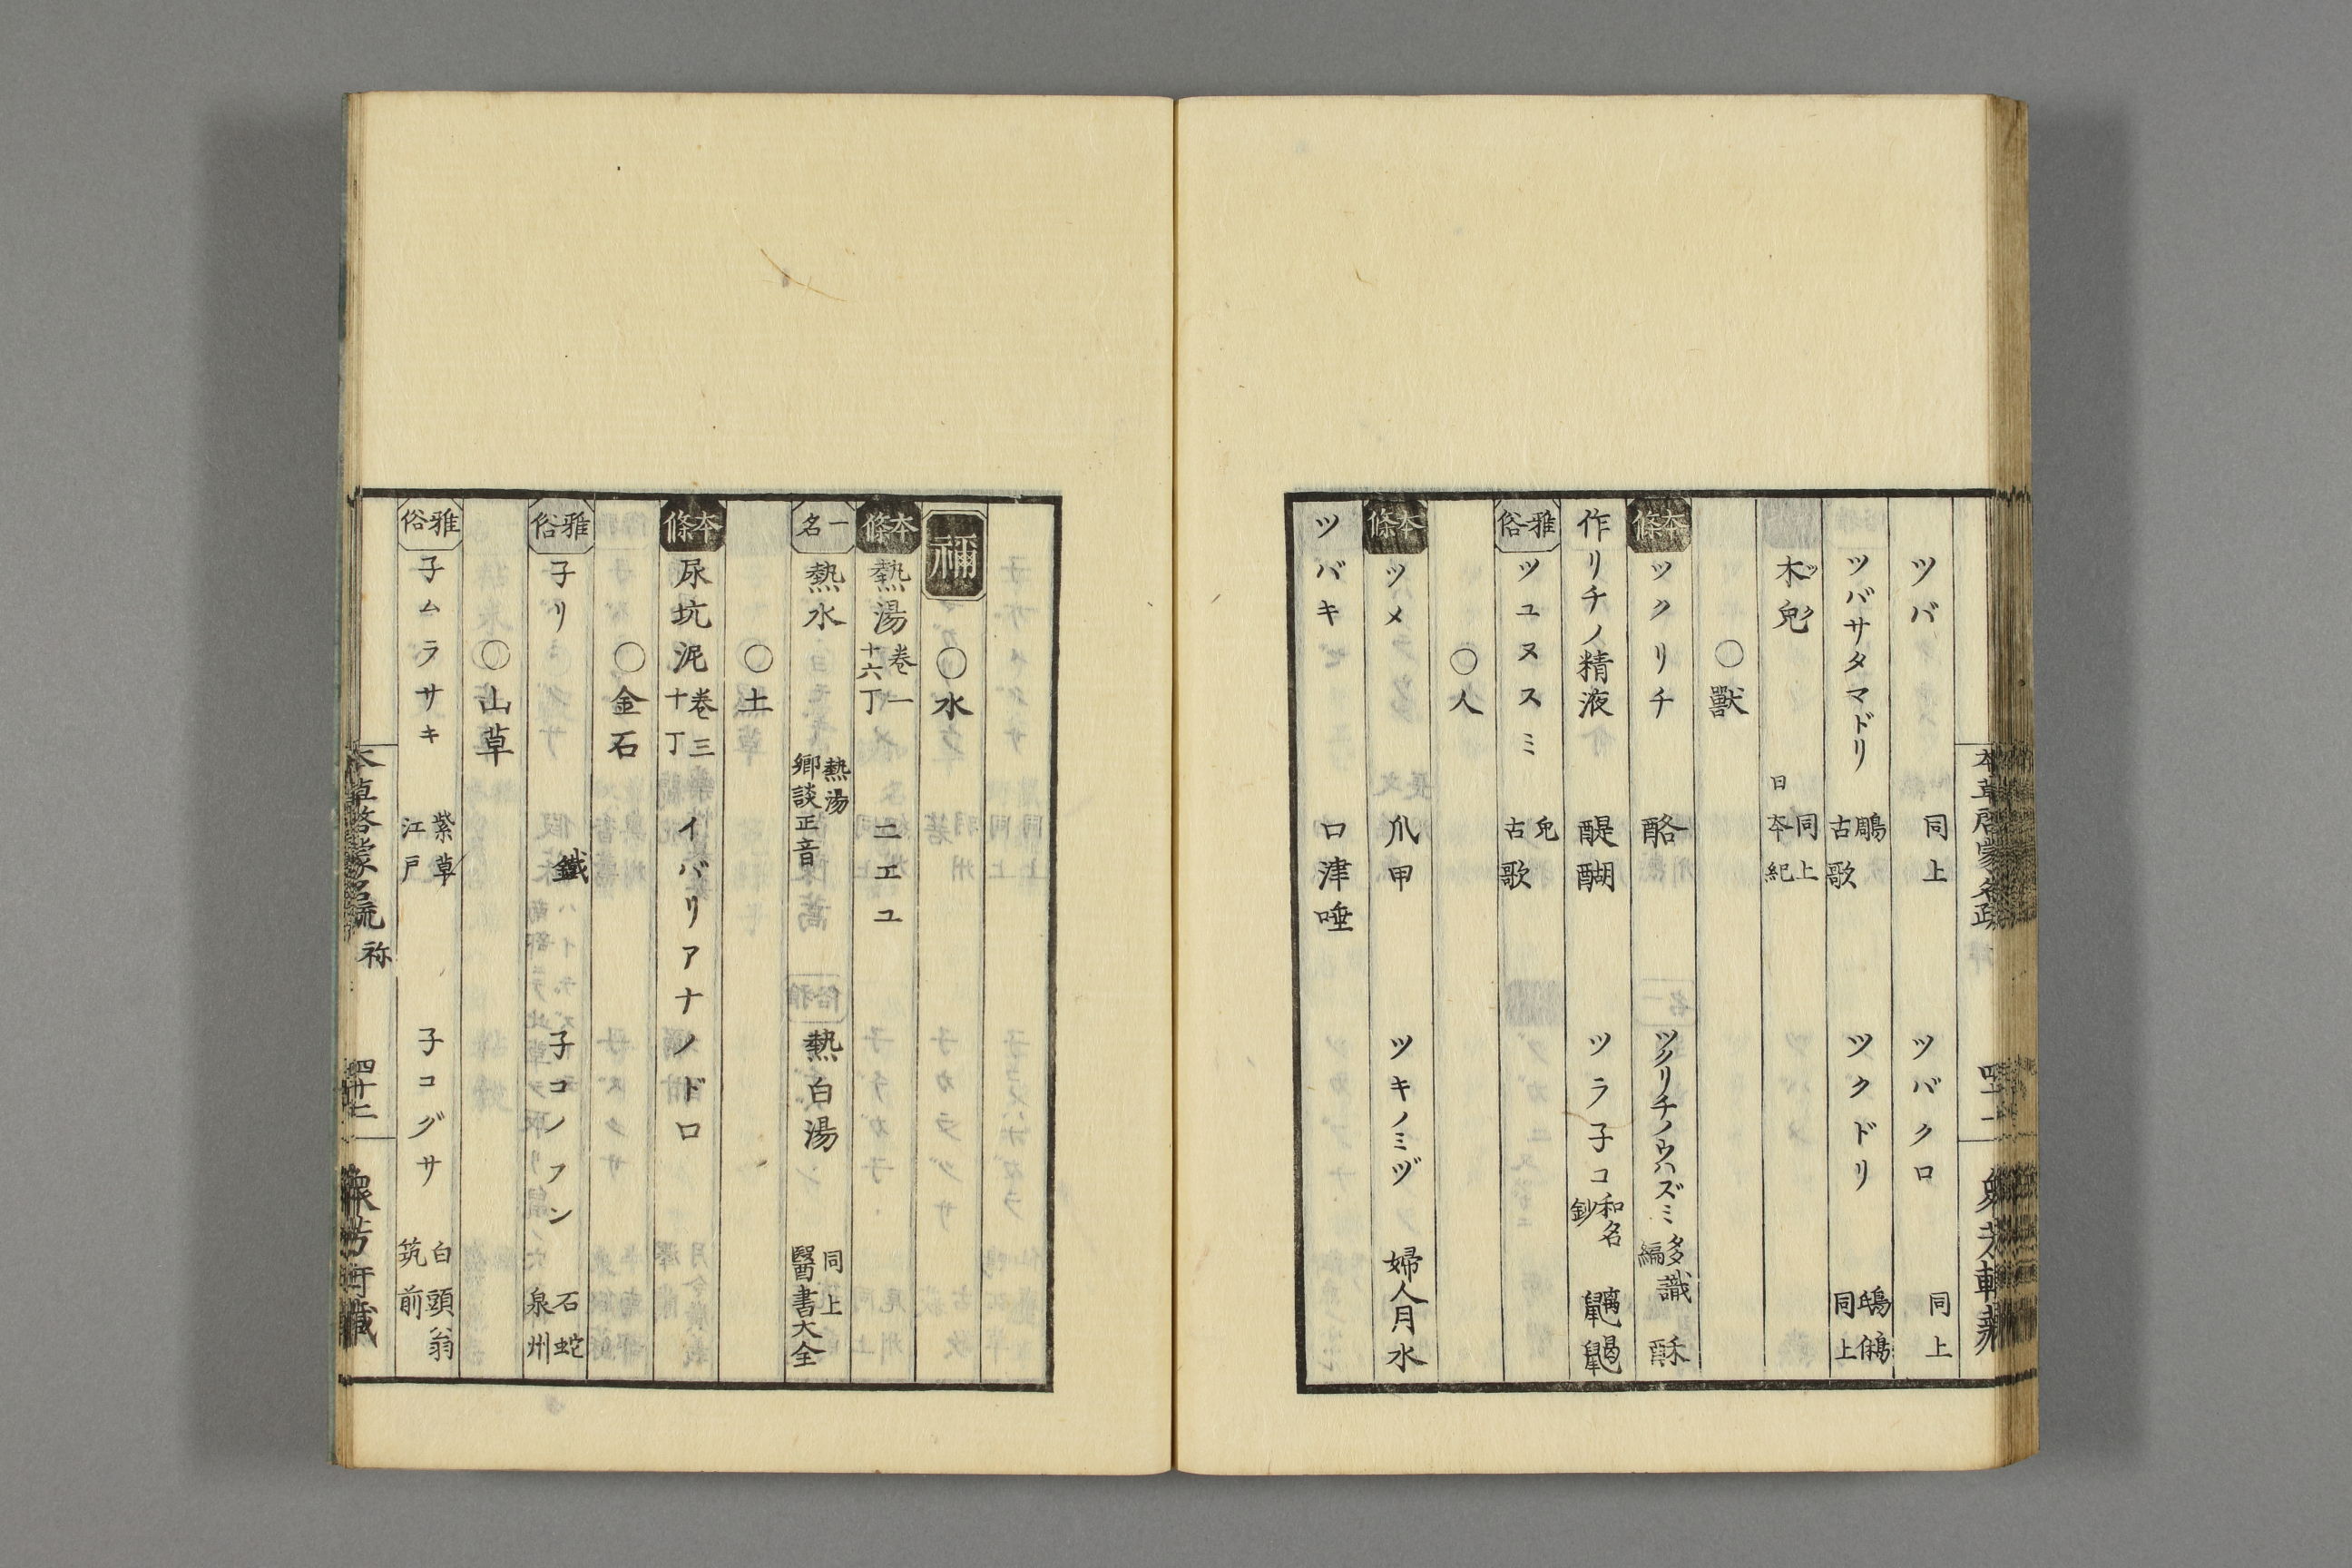 ツバ 同上 ツバクロ 同上
ツバサタマドリ 鵰 古歌 ツクドリ 鴟鵂 同上
木兎 ツク 同上 日本紀
〇獸
本條 ツクリチ 酪 ツクリチノウハズミ 多識編 酥
作リチノ精液 醍醐 ツラ子コ 和名鈔 䶉鼩
雅俗 ツユヌスミ 兎 古歌
〇人
本條 ツメ 爪甲 ツキノミヅ 婦人月水
ツバキ 口津唾
禰
〇水
本條 熱湯 卷一 十六丁 ニエユ
一名 熱水 熱湯 鄉談正音 熱白湯 同上 醫書大全
〇土
本條 尿坑泥 卷三 十丁 イバリアナノドロ
〇金石
雅俗 子リ 鐵 子コノフン 石蛇 泉州
〇山草
雅俗 子ムラサキ 紫草 江戸 子コグサ 白頭翁 筑前
本草啓蒙名疏 祢 四十二